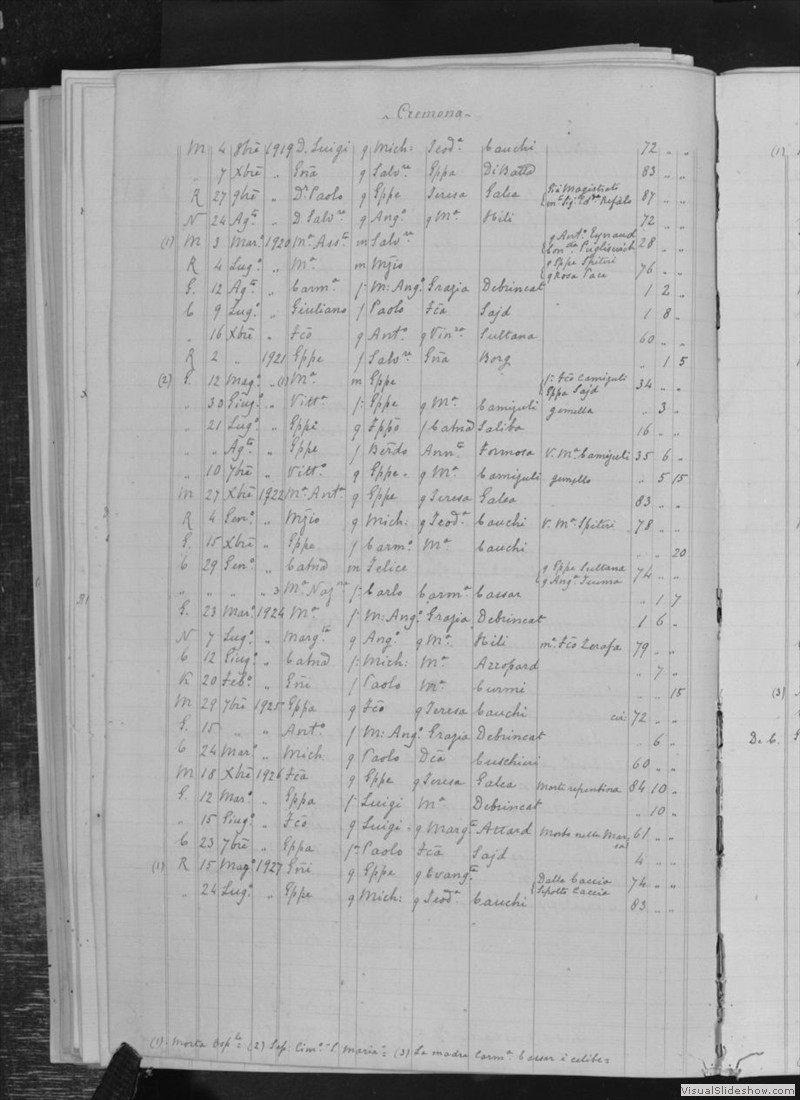 - Cremona -
M 4 8bre 1919 D. Luigi g Mich: Teod.a Cauchi 72 " "
" 7 Xbre " Gña g Salv.re Gppa DiBatto 83 " "
R 27 9bre " Dn Paolo g Gppe Teresa Galea 87 " "
N 24 Ag.to " D. Salv.re g Ang.o g M.a Hili 72 " "
(1) M 3 Mar.o 1920 M.a Ass.ta m Salv.re g Ant.o Eynaud 28 " "
R 4 Lug.o " M.a m Mjio g Gppe Spiteri g Rosa Pace 76 " "
G. 12 Ag.to " Carm.a f. M: Ang.o Grazia Debrincat 1 2 "
C 9 Lug.o " Giuliano f Paolo Fca Sajd 1 8 "
" 16 Xbre " Fco g Ant.o g Vin.za Sultana 60 " "
R 2 " 1921 Gppe f Salv.re Gña Borg " 1 5
(2) G. 12 Mag.o " M.a m Gppe f. Fco Camiguli Gppa Sajd 34 " "
" 30 Giug.o " Vitt.a f. Gppe g M.a Camiguli gemella " 3 "
" 21 Lug.o " Gppe g Saliba 16 " "
" " Ag.to " Gppe f Berdo Ann.ta Formosa V. M.a Camiguli 35 6 "
" 10 7bre " Vitt.o g Gppe g M.a Camiguli gemello " 5 15
M 27 Xbre 1922 M.a Ant.a g Gppe g Teresa Galea 83 " "
R 4 Gen.o " Mjio g Mich: g Teod.a Cauchi V. M.a Spiteri 78 " "
G. 15 Xbre " Gppe f Carm.o M.a Cauchi " " 20
C 29 Gen.o " m Felice g Gppe Sultana g Ang.a 74 " "
" " " " 3 M.a f. Carlo Carm.a Cassar " 1 7
G. 23 Mar.o 1924 M.a f. M: Ang.o Grazia Debrincat 1 6 "
N 7 Lug.o " Marg.ta g Ang.o g M.a Hili m.a Fco Zerafa 79 " "
C 12 Giug.o " f. Mich: M.a Azzopard " 7 "
K 20 Feb.o " Gñi f Paolo M.a Curmi " " 15
M 29 7bre 1925 Gppa g Fco g Teresa Cauchi 72 " "
G. 15 " " Ant.o f M: Ang.o Grazia Debrincat " 6 "
C 24 Mar.o " Mich g Paolo Dca Cuschieri 60 " "
M 18 Xbre 1926 Fca g Gppe g Teresa Galea Morte repentina 84 10 "
G. 12 Mar.o " Gppa f. Luigi M.a Debrincat " 10 "
" 15 Giug.o " Fco g Luigi g Marg.ta Attard Morto nella Marsa 61 " "
C 23 7bre " Gppa f. Paolo Fca Sajd 4 " "
(1) R 15 Mag.o 1927 Gñi g Gppe g Evang.ta Dalla Caccia 74 " "
" 24 Lug.o " Gppe g Mich: g Teod.a Cauchi 83 " "
(1) Morta Osp.le = (2) Sep: Cim.o S. Maria = (3) La madre Carm.a Cassar è celibe =
(1)
(3)
De C.
VisualSlideshow.com